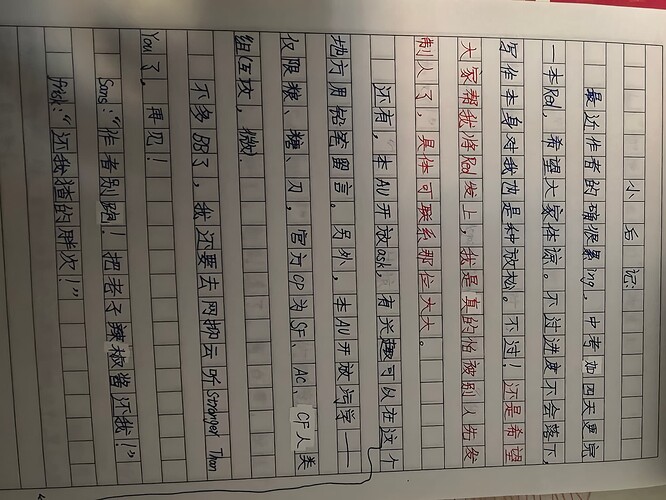 小后记:
最近作者的确很累ing，中考加四天更完
一本Red，希望大家体凉。不过进度不会落下，
写作本身对我也是种放松。不过！还是希望
大家帮我将Red发上，我是真的怕被别人先发
制人了，具体可联系那位大大。
还有，本AU开放ask，有兴趣可以在这个
地方用铅笔留言。另外，本AU开放污学——
仅限粮、糖、刀，官方CP为SF、AC、CF人类
组互攻，微
不多BB了，我还要去网抑云听Stronger Than
You了，再见！
Sans:"作者别跑！把老子辣椒酱还我！"
frisk:"还我猹的胖次！"